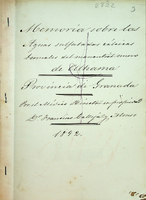 2882
3
Memoria sobre las
Aguas sulfatadas cálcicas
termales del manantial nuevo
de Alhama
Provincia de Granada
Por el Médico Director en propiedad
Dr Francisco
1882.